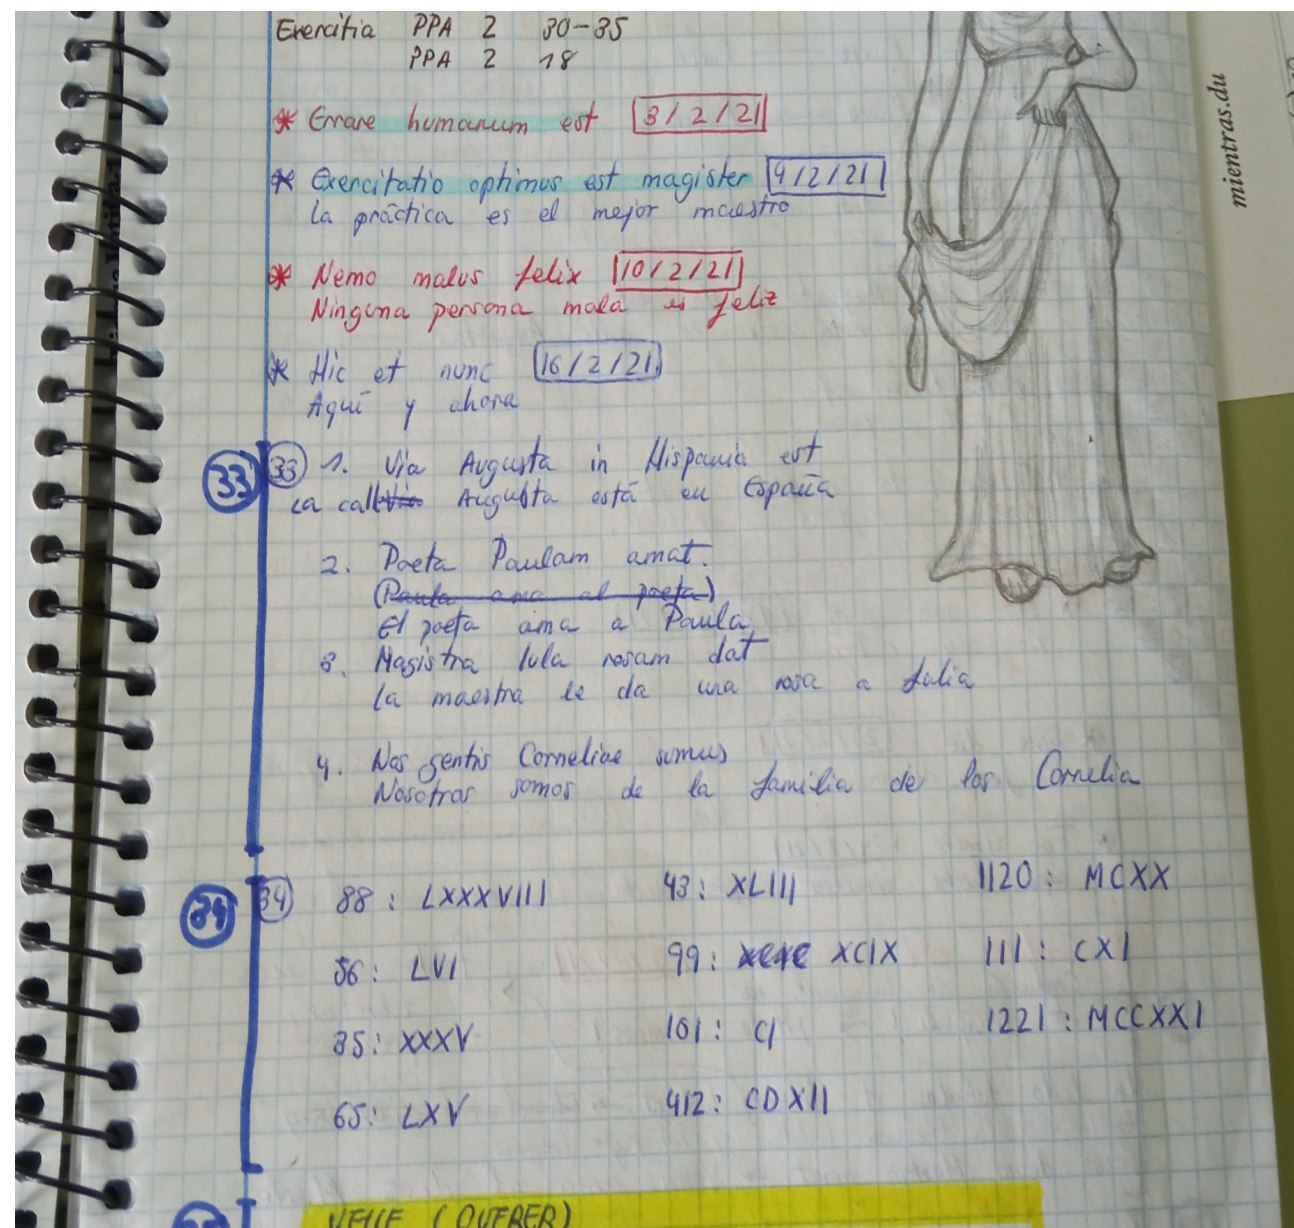 Exercitia PPA 2 30-35
PPA 2 18
* Errare humanum est 3/2/21
* Exercitatio optimus est magister 9/2/21
La práctica es el mejor maestro
* Nemo malus felix 10/2/21
Ninguna persona mala es feliz
* Hic et nunc 16/2/21
Aquí y ahora
33 33 1. Via Augusta in Hispania est
La call Augusta está en España
2. Poeta Paulam amat.
(Paula ama al poeta)
El poeta ama a Paula
3. Magistra Iulia rosam dat
la maestra le da una rosa a Julia
4. Nos gentis Corneliae sumus
Nosotros somos de la familia de los Cornelia
34 34 88: LXXXVIII 43: XLIII 1120: MCXX
56: LVI 99: XCIX 111: CXI
35: XXXV 101: CI 1221: MCCXXI
65: LXV 412: CDXII
VELLE (QUERER)
mientras.du